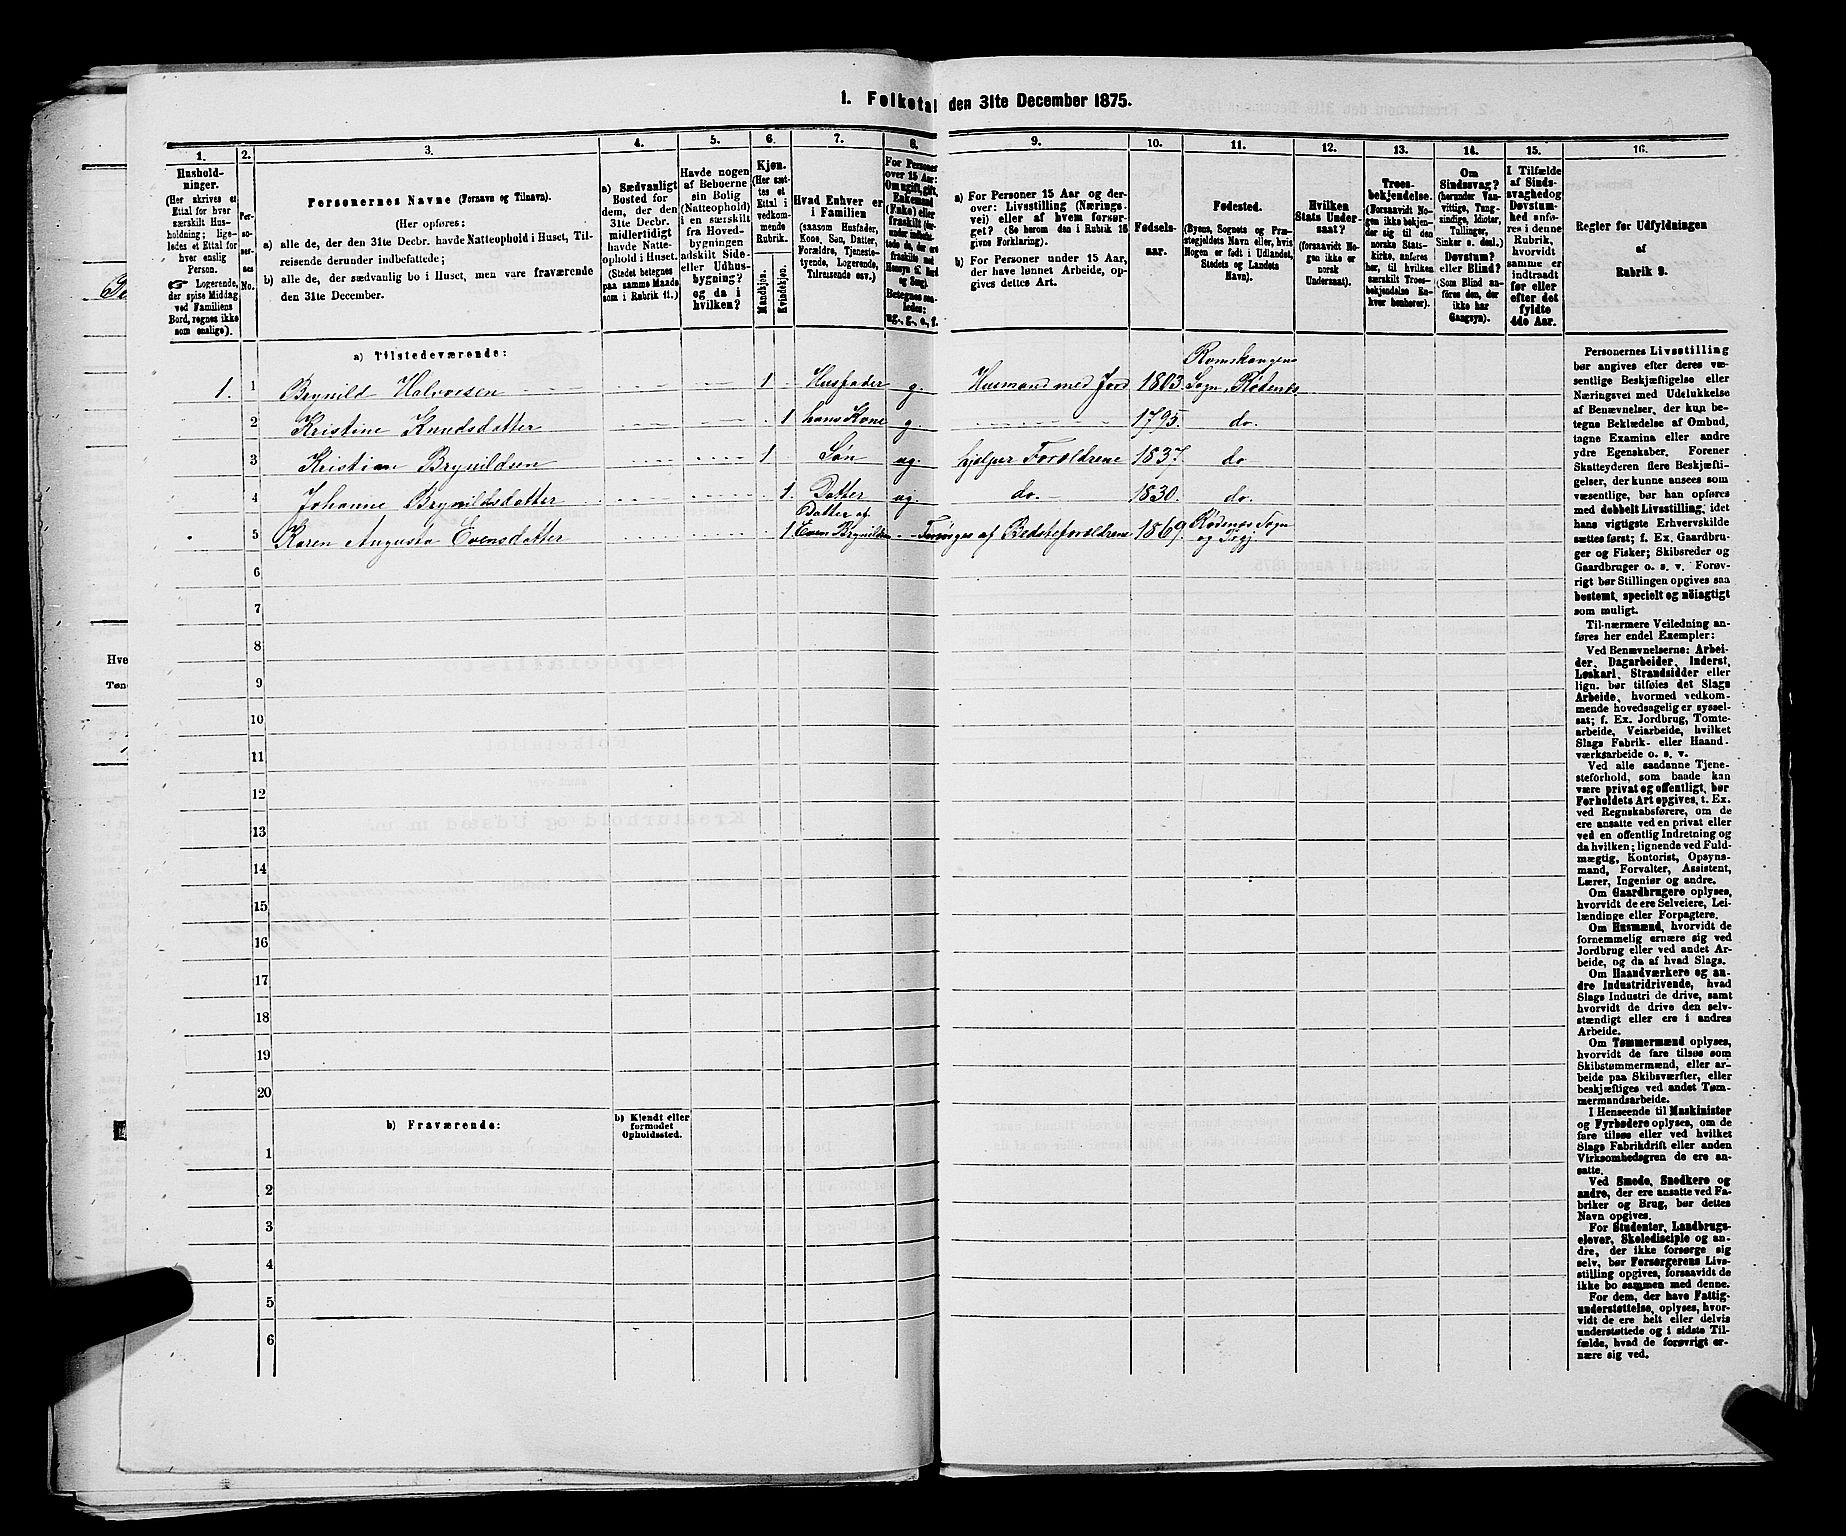 1. Folketal den 31te December 1875.
1.
Hushold-
ninger.
(Her skrives et
Ettal for hver
særskilt Hus-
holdning; lige-
ledes et Ettal for
hver enslig
Person.
☛ Logerende,
der spise Middag
ved Familiens
Bord, regnes ikke
som enslige).
2.
Per-
so-
ner-
nes
No.
3.
Personernes Navne (Fornavn og Tilnavn).
(Her opføres:
a) alle de, der den 31te Decbr. havde Natteophold i Huset, Til-
reisende derunder indbefattede;
b) alle de, der sædvanlig bo i Huset, men vare fraværende
den 31te December.
4.
a) Sædvanligt
Bosted for
dem, der den
31te Decbr.
midlertidigt
havde Natte-
ophold i Huset.
(Stedet betegnes
paa samme Maade
som i Rubrik 11.)
5.
Havde nogen
af Beboerne
sin Bolig
(Natteophold)
i en særskilt
fra Hoved-
bygningen
adskilt Side-
eller Udhus-
bygning?
og da i
hvilken?
6.
Kjøn.
(Her sæt-
tes et
Ettal i
vedkom-
mende
Rubrik.
Mandkjøn.
Kvindekjøn.
7.
Hvad Enhver er
i Familien
(saasom Husfader,
Kone, Søn, Datter,
Forældre, Tjeneste-
tyende, Logerende,
Tilreisende osv.)
8.
For Personer
over 15 Aar:
Om ugift, gift,
Enkemand
(Enke) eller
fraskilt
9.
a) For Personer 15 Aar og der-
over: Livsstilling (Nærings-
vei) eller af hvem forsør-
get? (Se herom den i Rubrik 16
givne Forklaring).
b) For Personer under 15 Aar,
der have lønnet Arbeide, op-
gives dettes Art.
10.
Fødsels-
aar.
11.
Fødested.
(Byens, Sognets og Præ-
stegjeldets Navn eller, hvis
Nogen er født i Udlandet,
Stedets og Landets
Navn).
12.
Hvilken
Stats Under-
saat?
(forsaavidt No-
gen ikke er
norsk
Undersaat).
13.
Troes-
bekjendelse.
(Forsaavidt No-
gen ikke bekjen-
der sig til den
norske Stats-
kirke, anføres
her, til hvilken
Troes-
bekjendelse En-
hver henhører).
14.
Om
Sindssvag?
(herunder Van-
vittige, Tung-
sindige, Idioter,
Tullinger,
Sinker o. desl.)
Døvstum?
eller Blind?
(Som Blind an-
føres den, der
ikke har
Gangsyn).
15.
I Tilfælde
af Sinds-
svaghed og
Døvstum-
hed anfø-
res i denne
Rubrik,
hvorvidt
samme er
indtraadt
før eller
efter det
fyldte
4de Aar.
16.
Regler for Udfyldningen
af
Rubrik 9.
a) Tilstedeværende:
1. 1 Brynild Halvorsen 1 Husfader g. Husmand med Jord 1803. Romskogens Sogn, Rødenæs
2 Kristine Knudsdatter 1 hans Kone g. 1795. do.
3 Kristian Brynildsen 1 Søn ug. hjelper Forældrene 1837. do
4 Johanne Brynildsdatter 1. Datter ug. do. 1830. do.
5 Karen Augusta Evensdatter 1 Datter af Even Brynildsen Forsørges af Bedsteforældrene 1869. Rødenæs Sogn
6
7
8
9
10
11
12
13
14
15
16
17
18
19
20
b) Fraværende:
b) Kjendt eller
formodet
Opholdssted.
1
2
3
4
5
6
Personernes Livsstilling
bør angives efter deres væ-
sentlige Beskjæftigelse eller
Næringsvei med Udelukkelse
af Benævnelser, der kun be-
tegne Beklædelse af Ombud,
tagne Examina eller andre
ydre Egenskaber. Forener
Skatteyderen flere Beskjæfti-
gelser, der kunne ansees som
væsentlige, bør han opføres
med dobbelt Livsstilling, idet
hans vigtigste Erhvervskilde
sættes først; f. Ex. Gaardbru-
ger og Fisker; Skibsreder og
Gaardbruger o. s. v. Forøv-
rigt bør Stillingen opgives saa
bestemt, specielt og nöiagtigt
som muligt.
Til nærmere Veiledning an-
føres her endel Exempler:
Ved Benævnelserne: Arbei-
der, Dagarbeider, Inderst,
Løskarl, Strandsidder eller
lign. bør tilføies det Slags
Arbeide, hvormed vedkom-
mende hovedsagelig er syssel-
sat; f. Ex. Jordbrug, Tomte-
arbeide, Veiarbeide, hvilket
Slags Fabrik- eller Haand-
værksarbeide o. s. v.
Ved alle saadanne Tjene-
steforhold, som baade kan
være privat og offentligt, bør
Forholdets Art opgives, t. Ex.
ved Regnskabsførere, om de
ere ansatte ved en privat eller
ved en offentlig Indretning og
da hvilken; lignende ved Fuld-
mægtig, Kontorist, Opsyns-
mand, Forvalter, Assistent,
Lærer, Ingeniør og andre.
Om Gaardbrugere oplyses,
hvorvidt de ere Selveiere, Lei-
lændinge eller Forpagtere.
Om Husmænd, hvorvidt de
fornemmelig ernære sig ved
Jordbrug eller ved andet Ar-
beide, og da af hvad Slags.
Om Haandværkere og an-
dre Industridrivende, hvad
Slags Industri de drive, samt
hvorvidt de drive den selv-
stændigt eller ere i andres
Arbeide.
Om Tømmermænd oplyses,
hvorvidt de fare tilsøs som
Skibstømmermænd, eller ar-
beide paa Skibsværfter, eller
beskjæftiges ved andet Tøm-
mermandsarbeide.
I Henseende til Maskinister
og Fyrbødere oplyses, om de
fare tilsøs eller ved hvilket
Slags Fabrikdrift eller anden
Virksomhedsgren de ere an-
satte.
Ved Smede, Snedkere og
andre, der ere ansatte ved Fa-
briker og Brug, bør dettes
Navn opgives.
For Studenter, Landbrugs-
elever, Skoledisciple og an-
dre, der ikke forsørge sig
selv, bør Forsørgerens Livs-
stilling opgives, forsaavidt de
ikke bo sammen med denne.
For dem, der have Fattig-
understøttelse, oplyses, hvor-
vidt de ere helt eller delvis
understøttede og i sidste Til-
fælde, hvad de forøvrigt er-
nære sig ved.